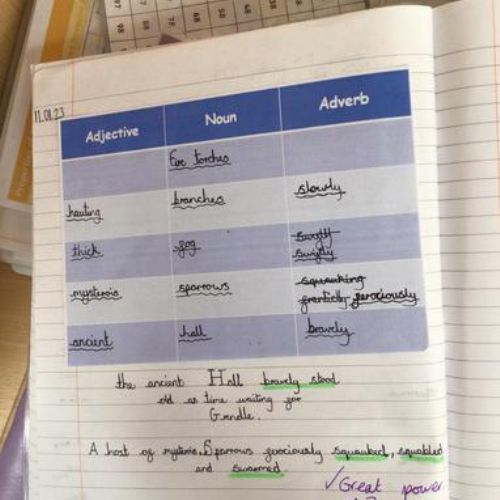 11.01.23
Adjective Noun Adverb
Fire torches
hauting branches slowly
thick fog swiftly
swiftly
mysterois sparrows squeaking
frantically ferociously
ancient hall bravely
the ancient Hall bravely stood
old as time waiting for
Grendle.
A host of mysterois Sparrows ferociously squawked, squabbled
and swarmed.
✓ Great power